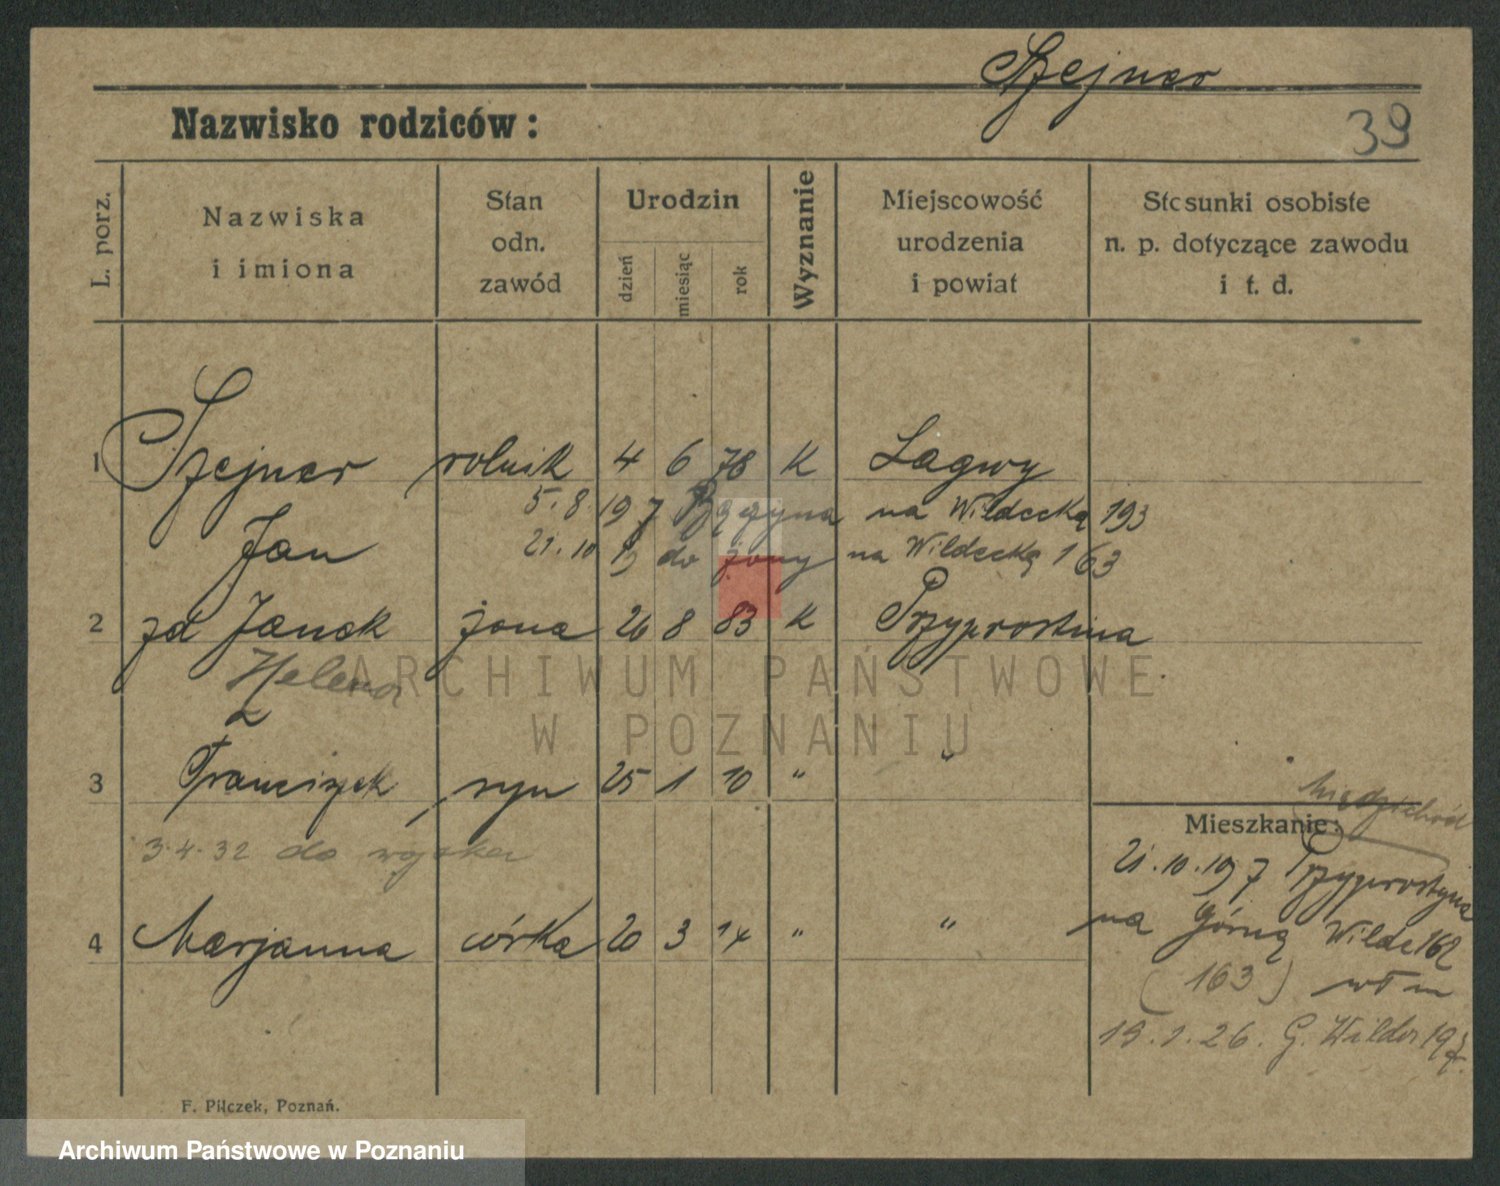 Szejner
39
Nazwisko rodziców:
L. porz.
Nazwiska
i imiona
Stan
odn.
zawód
Urodzin
dzień
miesiąc
rok
Wyznanie
Miejscowość
urodzenia
i powiat
Stosunki osobiste
n. p. dotyczące zawodu
i t. d.
1 Szejner rolnik 4 6 78 K Lagwy
5.8.197 na Wildecką 193
Jan 21.10 19 do żony na Wildecką 163
2 zd Janek żona 26 8 83 K Przyprostina
Helena
3 Franciszek syn 25 1 10 " "
3.4.32 do wojska
4 Marjanna córka 20 3 14 " "
Międzychód
Mieszkanie:
21.10.197 Przyprostyna
na Górną Wilde 162
(163) wł m
19.1.26. G. Wilda
F. Pilczek, Poznań.
ARCHIWUM PAŃSTWOWE
W POZNANIU
Archiwum Państwowe w Poznaniu